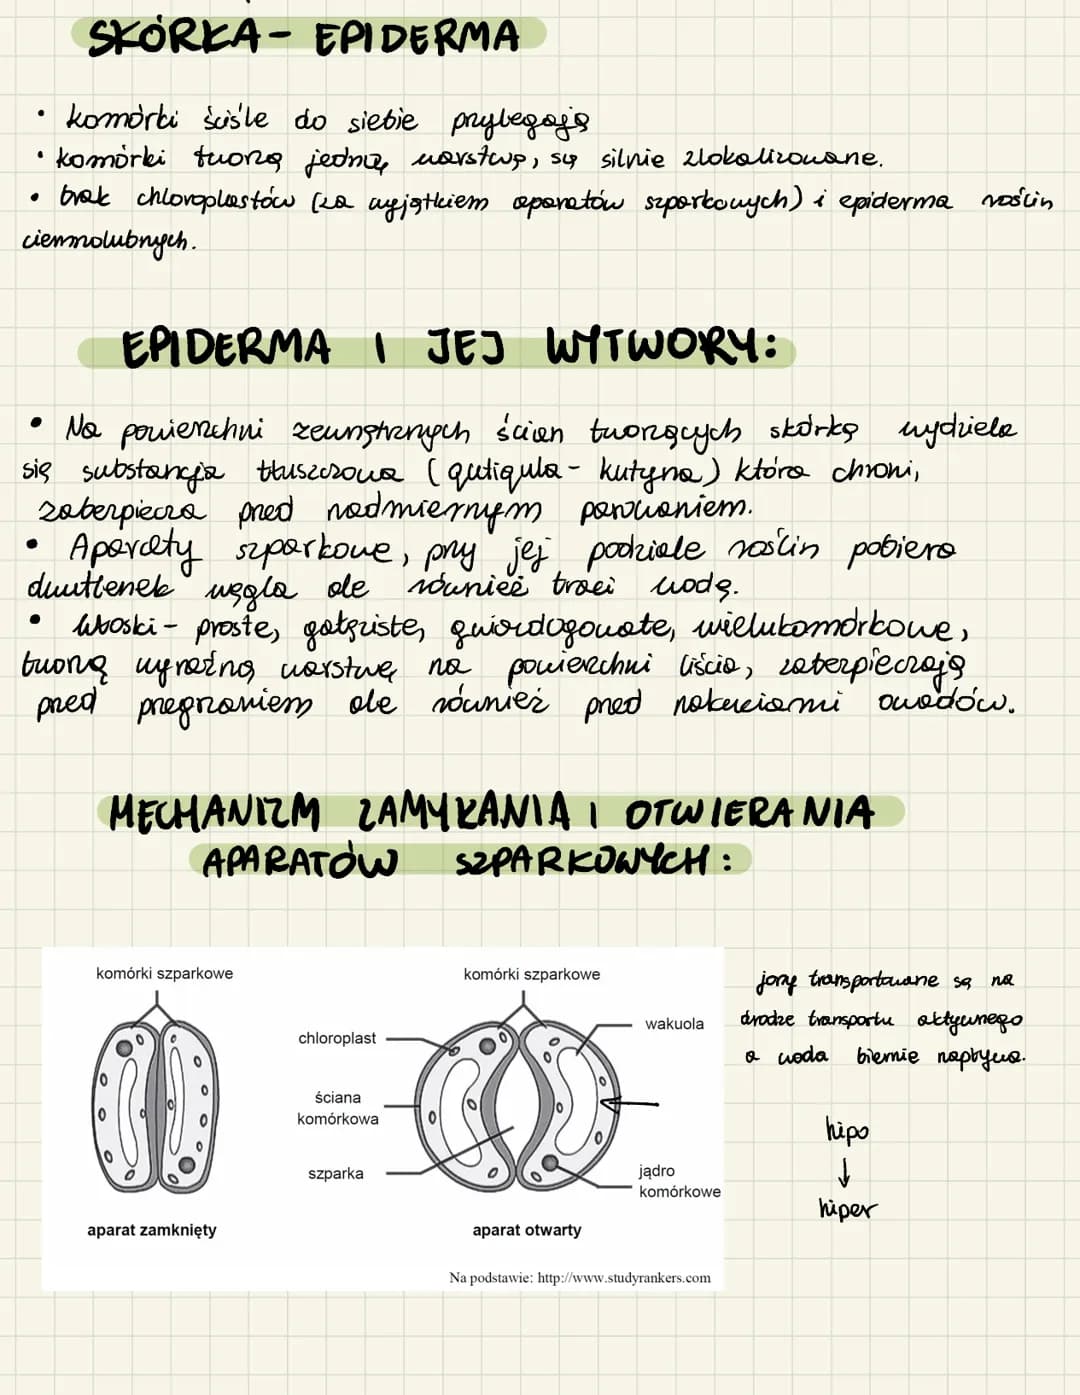 SKÓRKA - EPIDERMA
• komórki ściśle do siebie przylegają
• komórki tworzą jedną warstwę, są silnie zlokalizowane.
• brak chloroplastów (za wyjątkiem aparatów szparkowych) i epiderma roślin
cieniolubnych.
EPIDERMA I JEJ WYTWORY:
• Na powierzchni zewnętrznych ścian tworzących skórkę wydziela
się substancja tłuszczowa (qutiqula - kutyna) która chroni,
zabezpiecza przed nadmiernym parowaniem.
• Aparaty szparkowe, przy jej podziale roślin pobiera
dwutlenek węgla ale również traci wodę.
• Włoski - proste, gałęziste, gwiazdogowate, wielokomórkowe,
tworzą wyraźną warstwę na powierzchni liścia, zabezpieczają
przed przegrzaniem ale również przed nakłuciami owadów.
MECHANIZM ZAMYKANIA I OTWIERANIA
APARATÓW SZPARKOWYCH:
komórki szparkowe
komórki szparkowe
chloroplast
wakuola
ściana
komórkowa
szparka
jądro
komórkowe
aparat zamknięty
aparat otwarty
Na podstawie: http://www.studyrankers.com
jony transportowane są na
drodze transportu aktywnego
a woda biernie napływa.
hipo
↓
hiper